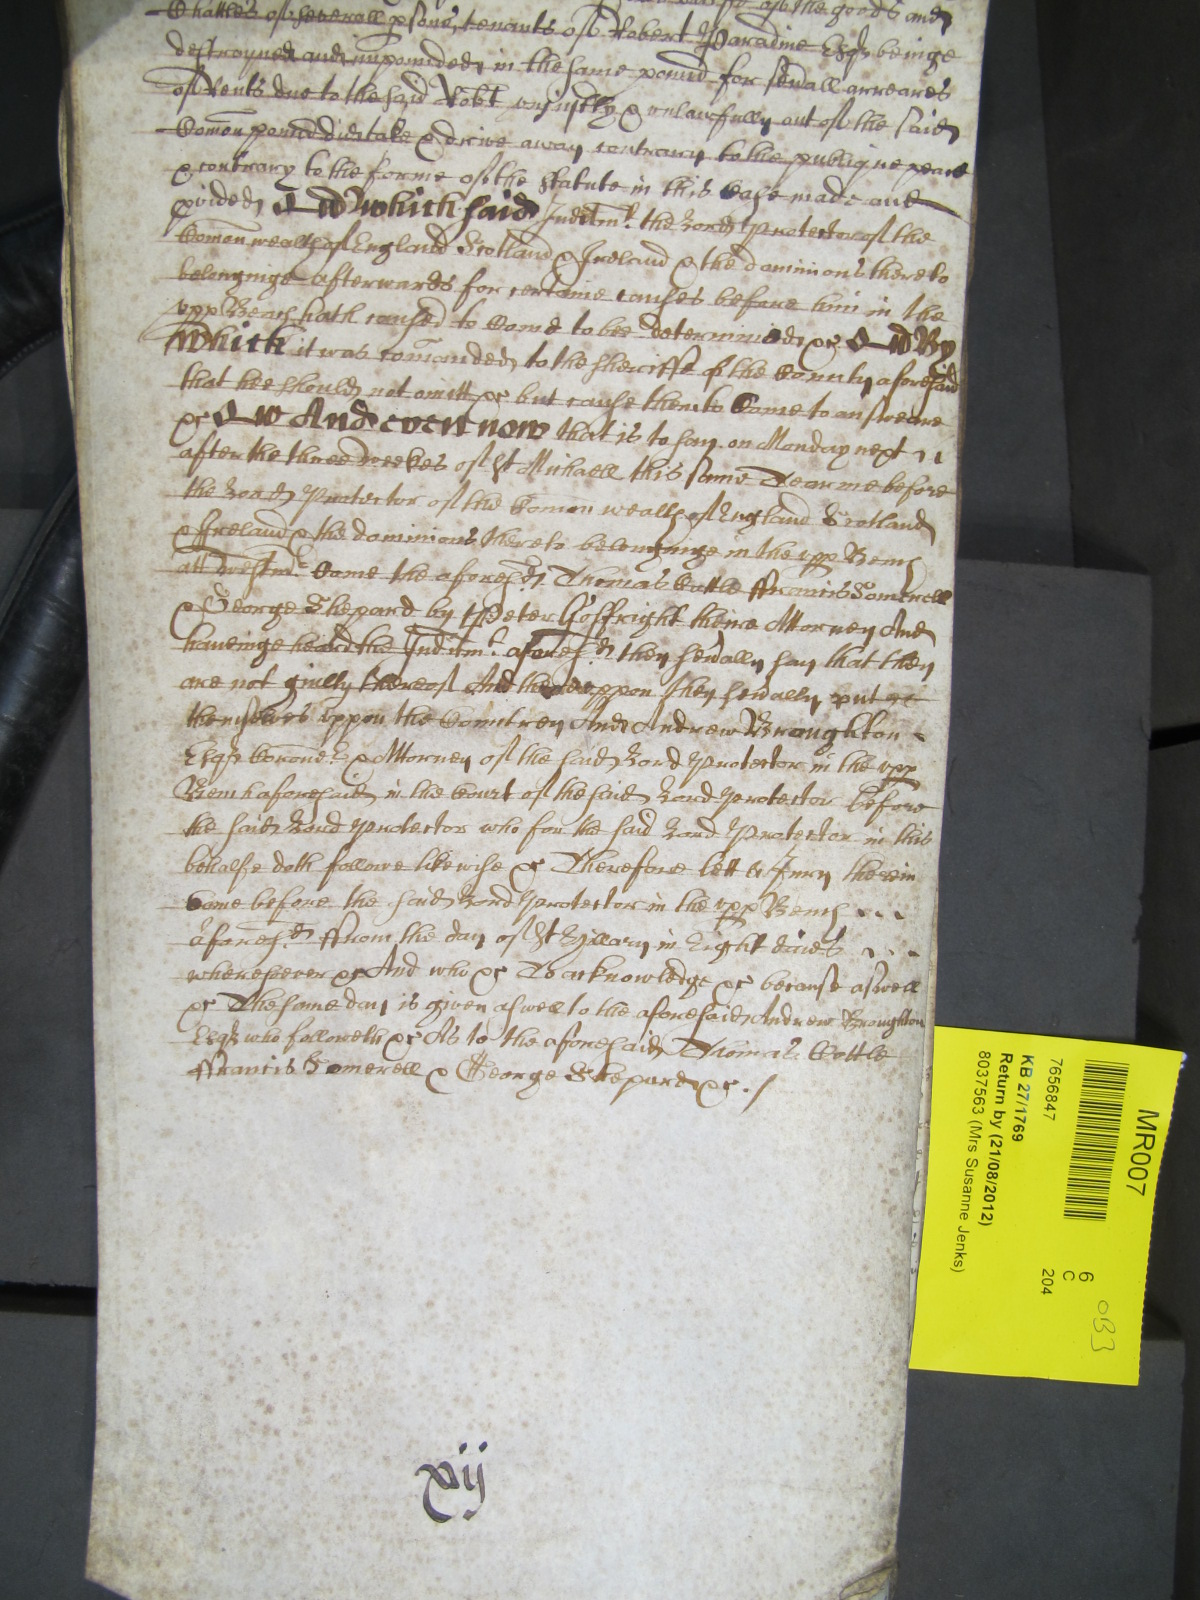 of the goods and
Chattles of severall psons, tenants of Robert Paradine Esqr beinge
destreyned and impounded in the same pound for sevall arreares
of Rents due to the said Robt unjustly & unlawfully out of the said
Comon pound did take & drive away contrary to the publique peace
& contrary to the forme of the Statute in this Case made and
pvided &c Which said Indictmt the Lord Protector of the
Comon wealth of England Scotland & Ireland & the dominions thereto
belonginge afterwards for certaine causes before him in the
upp Bench hath caused to Come to bee determined &c By
which it was comanded to the Sheriffe of the County aforesaid
that hee should not omitt &c but cause them to Come to answeare
&c And even now that is to say on Monday next
after the three weekes of St Michaell this same Tearme before
the Lord Protector of the Comon wealth of England Scotland
& Ireland & the dominions thereto belonginge in the upp Bench
att Westmr Came the aforesd Thomas Cottle Ffrancis Somerell
& George Shepard by Peter Goffright theire Attorney And
haveinge heard the Indictmt aforesd they sevally say that they
are not guilty thereof And thereuppon they sevally put
themselves uppon the Countrey And Andrew Broughton
Esqr Coroner & Attorney of the said Lord Protector in the upp
Bench aforesaid in the Court of the said Lord Protector before
the said Lord Protector who for the said Lord Protector in this
behalfe doth followe likewise &c Therefore lett a Jury therein
Come before the said Lord Protector in the upp Bench
aforesd ffrom the day of St Hillary in Eight daies
wheresoever &c And who &c To acknowledge &c because aswell
&c The same day is given aswell to the aforesaid Andrew Broughton
Esqr who followeth &c As to the aforesaid Thomas Cottle
Ffrancis Somerell & George Shepard &c.
xij
MR007
7656847
KB 27/1769
Return by (21/08/2012)
8037563 (Mrs Susanne Jenks)
6
C
204
OB3